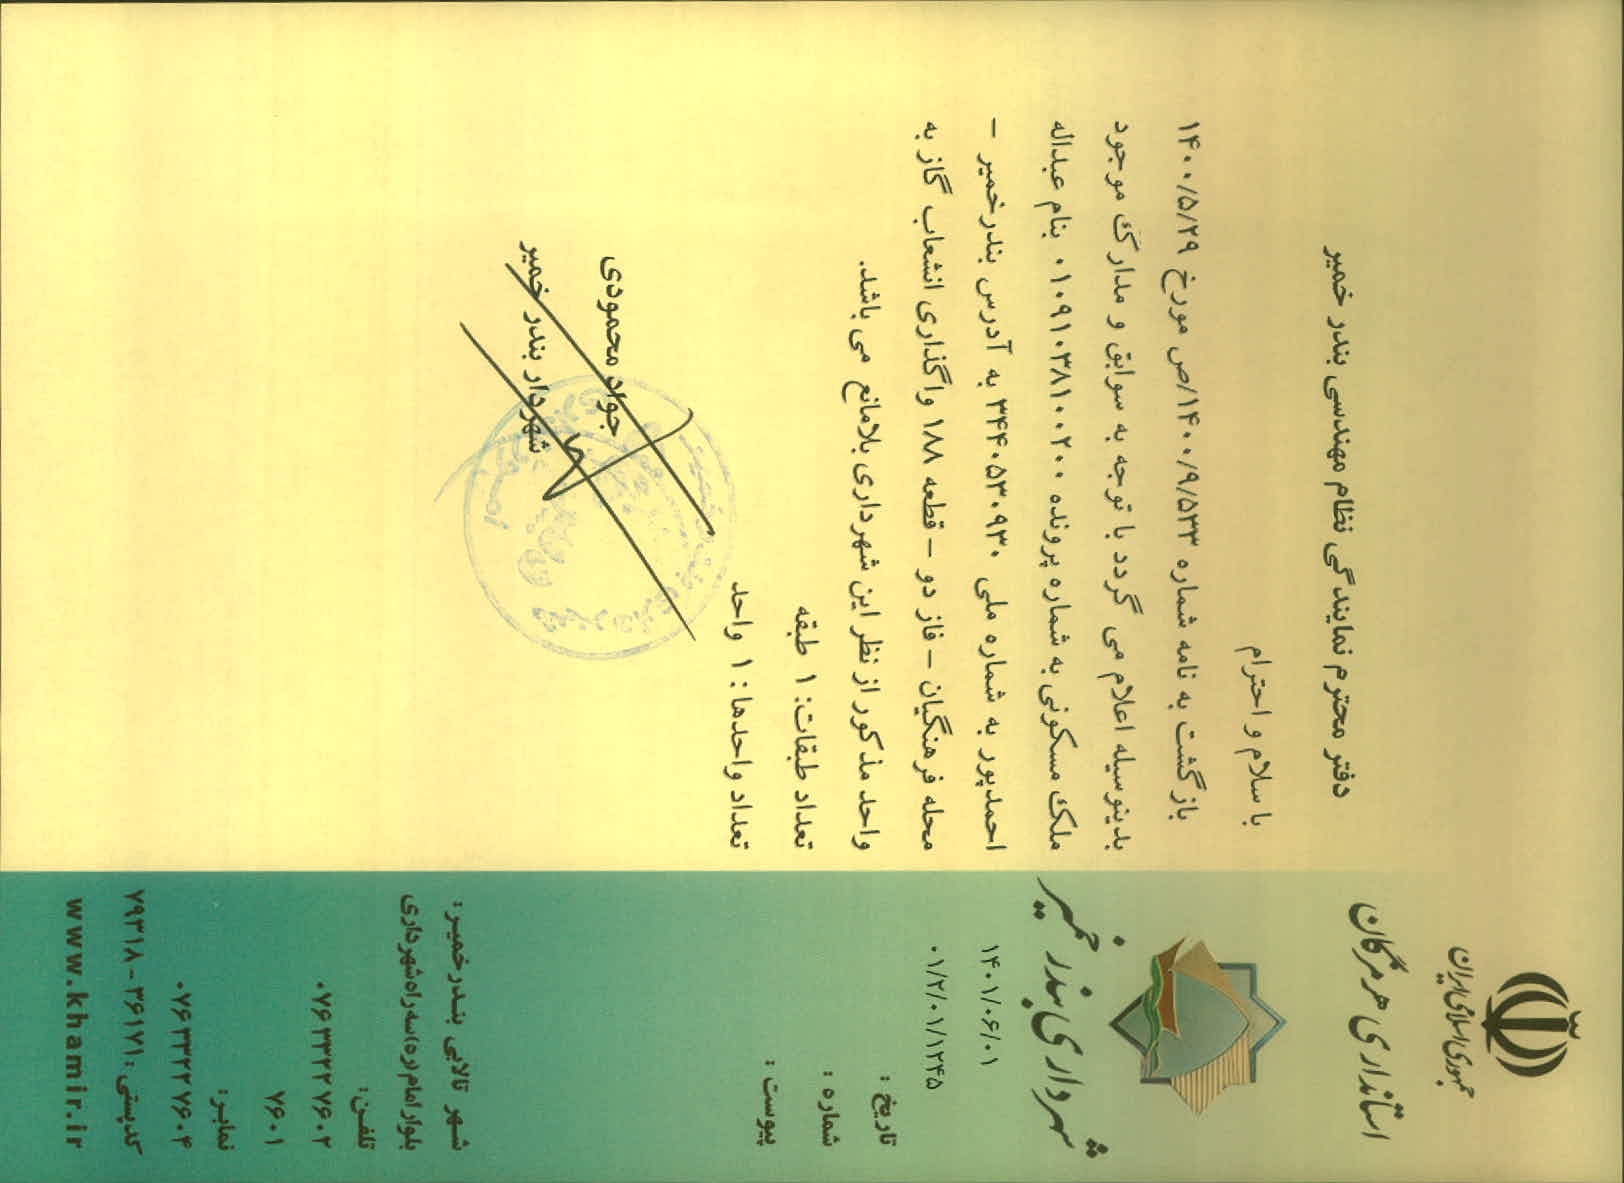 جمهوری اسلامی ایران
استانداری هرمزگان
شهرداری بندر خمیر
۱۴۰۱/۰۶/۰۱
۰۱/۲/۰۱/۱۲۴۵
تاریخ :
شماره :
پیوست :
دفتر محترم نمایندگی نظام مهندسی بندر خمیر
با سلام و احترام
بازگشت به نامه شماره ۱۴۰۰/۹/۵۳۳/ص مورخ ۱۴۰۰/۵/۲۹
بدینوسیله اعلام می گردد با توجه به سوابق و مدارک موجود
ملک مسکونی به شماره پرونده ۰۱۰۹۱۰۳۸۱۰۰۲۰۰ بنام عبداله
احمدپور به شماره ملی ۳۴۴۰۵۳۰۹۳۰ به آدرس بندرخمیر –
محله فرهنگیان – فاز دو – قطعه ۱۸۸ واگذاری انشعاب گاز به
واحد مذکور از نظر این شهرداری بلامانع می باشد.
تعداد طبقات: ۱ طبقه
تعداد واحدها: ۱ واحد
جواد محمودی
شهردار بندر خمیر
شهر تالابی بندرخمیر :
بلوار امام(ره)سه راه شهرداری
تلفن:
۰۷۶۳۳۲۲۷۶۰۲
۷۶۰۱
نمابر:
۰۷۶۳۳۲۲۷۶۰۴
کدپستی: ۳۶۱۷۱-۷۹۳۱۸
www.khamir.ir